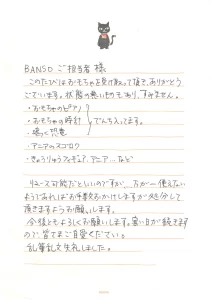 BANSO ご担当者 様
このたびはおもちゃを受け取って頂き、ありがとう
ございます。状態の悪いものもあり、すみません。
・おもちゃのピアノ
・おもちゃの時計 でんち入ってます。
・鳴く恐竜
・アニアのスゴロク
・きょうりゅうフィギュア、アニア…など
リユース可能だといいのですが、万が一使えない
ようであればお手数おかけしますが処分して
頂きますようお願いします。
今後ともよろしくお願いします。暑い日が続きます
ので、皆さまご自愛ください。
乱筆乱文失礼しました。